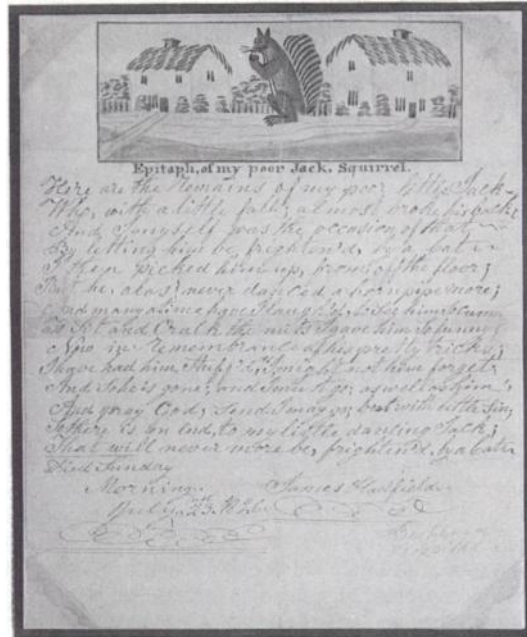 Epitaph, of my poor Jack, Squirrel.
Here are the Remains of my poor little Jack
Who, with a little fall, almost broke his back
And I myself was the occasion of that
By letting him be, frighten'd, by a Cat
I then picked him up, from off the floor;
But he, alas! never danced a hornpipe more;
And many a time have I laugh'd, to see him so cunning
to sit and Crack the nuts I gave him so funny
Now in remembrance of his pretty tricks,
I have had him stuff'd, I might not him forget
And so he is gone; and I must go, as well as him
And pray God, send I may go, but with little sin,
So there is an end, to my little dancing Jack;
That will never more be, frighten'd, by a Cat
Died Sunday
Morning James Hadfield
July